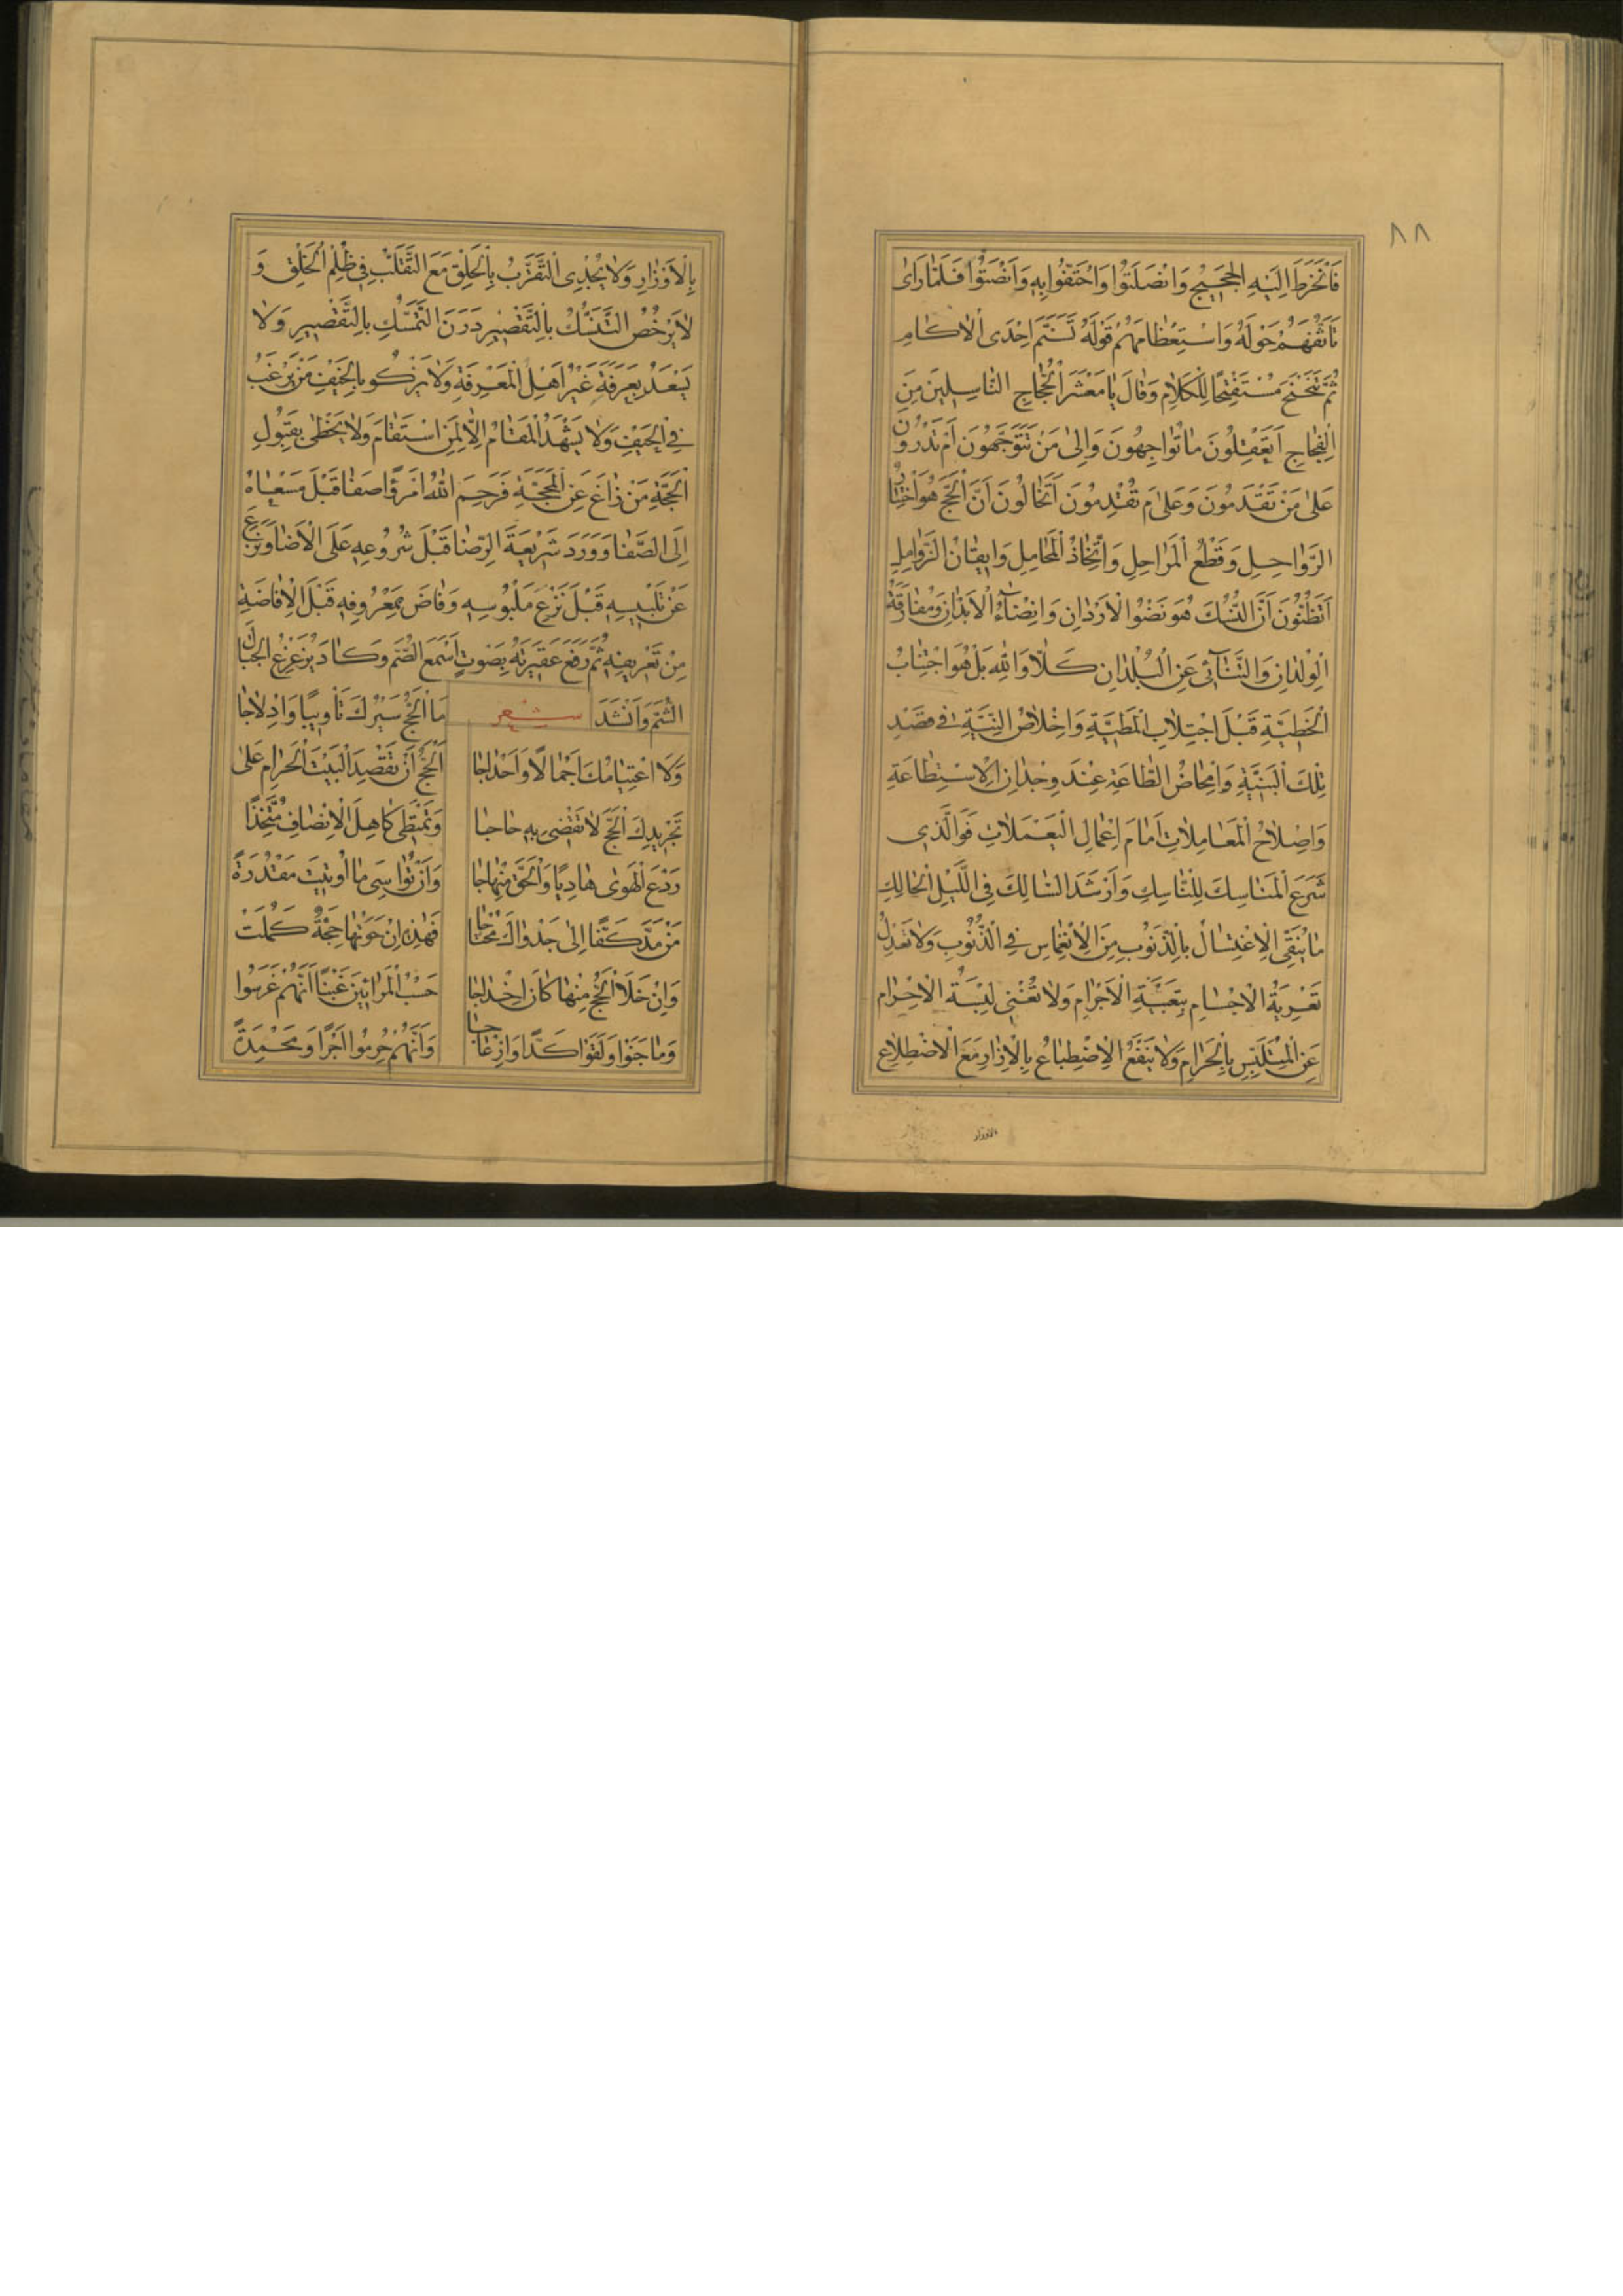 ٨٨
فَانْخَرَطَ اِلَيْهِ الْحَجِيجُ وَانْصَلَتُوا وَاحْتَفُّوا بِهِ وَاَنْصَتُوا فَلَمَّا رَاٰى
تَاَثُّفَهُمْ حَوْلَهُ وَاسْتِعْظَامَهُمْ قَوْلَهُ تَسَنَّمَ اِحْدَى الْاٰكَامِ
ثُمَّ تَنَحْنَحَ مُسْتَفْتِحًا لِلْكَلَامِ وَقَالَ يَا مَعْشَرَ الْحُجَّاجِ النَّاسِلِينَ مِنَ
الْفِجَاجِ اَتَعْقِلُونَ مَا تُوَاجِهُونَ وَاِلٰى مَنْ تَتَوَجَّهُونَ اَمْ تَدْرُونَ
عَلٰى مَنْ تَقْدَمُونَ وَعَلَامَ تُقْدِمُونَ اَتَخَالُونَ اَنَّ الْحَجَّ هُوَ اخْتِيَارُ
الرَّوَاحِلِ وَقَطْعُ الْمَرَاحِلِ وَاتِّخَاذُ الْمَحَامِلِ وَاِيقَانُ الزَّوَامِلِ
اَتَظُنُّونَ اَنَّ النُّسُكَ هُوَ نَضْوُ الْاَرْدَانِ وَاِنْضَاءُ الْاَبْدَانِ وَمُفَارَقَةُ
الْوِلْدَانِ وَالتَّنَائِى عَنِ الْبُلْدَانِ كَلَّا وَاللّٰهِ بَلْ هُوَ اجْتِنَابُ
الْخَطِيَّةِ قَبْلَ اجْتِلَابِ الْمَطِيَّةِ وَاِخْلَاصُ النِّيَّةِ فِى قَصْدِ
تِلْكَ الْبَنِيَّةِ وَاِمْحَاضُ الطَّاعَةِ عِنْدَ وِجْدَانِ الْاِسْتِطَاعَةِ
وَاِصْلَاحُ الْمُعَامَلَاتِ اَمَامَ اِعْمَالِ الْيَعْمَلَاتِ فَوَالَّذِى
شَرَعَ الْمَنَاسِكَ لِلنَّاسِكِ وَاَرْشَدَ السَّالِكَ فِى اللَّيْلِ الْحَالِكِ
مَا يُنَقِّى الْاِغْتِسَالُ بِالذَّنُوبِ مِنَ الْاِنْغِمَاسِ فِى الذُّنُوبِ وَلَا تَعْدِلُ
تَعْرِيَةُ الْاَجْسَامِ بِتَعْبِيَةِ الْاَجْرَامِ وَلَا تُغْنِى لِبْسَةُ الْاِحْرَامِ
عَنِ الْمُتَلَبِّسِ بِالْحَرَامِ وَلَا يَنْفَعُ الْاِضْطِبَاعُ بِالْاِزَارِ مَعَ الْاِضْطِلَاعِ
بالاوزار
بِالْاَوْزَارِ وَلَا يُجْدِى التَّقَرُّبُ بِالْحَلْقِ مَعَ التَّقَلُّبِ فِى ظُلْمِ الْخَلْقِ وَ
لَا يَرْخُصُ التَّنَسُّكُ بِالتَّقْصِيرِ دَرَنَ التَّمَسُّكِ بِالتَّقْصِيرِ وَلَا
يَسْعَدُ بِعَرَفَةَ غَيْرُ اَهْلِ الْمَعْرِفَةِ وَلَا يَزْكُو بِالْخَيْفِ مَنْ يَرْغَبُ
فِى الْحَيْفِ وَلَا يَشْهَدُ الْمَقَامَ اِلَّا لِمَنِ اسْتَقَامَ وَلَا يَحْظٰى بِقَبُولِ
الْحَجَّةِ مَنْ زَاغَ عَنِ الْمَحَجَّةِ فَرَحِمَ اللّٰهُ امْرَؤًا صَفَا قَبْلَ مَسْعَاهُ
اِلَى الصَّفَا وَوَرَدَ شَرِيعَةَ الرِّضَا قَبْلَ شُرُوعِهِ عَلَى الْاَضَا وَنَزَعَ
عَنْ تَلْبِيسِهِ قَبْلَ نَزْعِ مَلْبُوسِهِ وَفَاضَ بِمَعْرُوفِهِ قَبْلَ الْاِفَاضَةِ
مِنْ تَعْرِيفِهِ ثُمَّ رَفَعَ عَقِيرَتَهُ بِصَوْتٍ اَسْمَعَ الصُّمَّ وَكَادَ يُزَعْزِعُ الْجِبَالَ
الشُّمَّ وَاَنْشَدَ شعر مَا الْحَجُّ سَيْرُكَ تَاْوِيبًا وَاِدْلَاجَا
وَلَا اعْتِيَامُكَ اَجْمَالًا وَاَحْدَاجَا اَلْحَجُّ اَنْ تَقْصِدَ الْبَيْتَ الْحَرَامَ عَلٰى
تَجْرِيدِكَ الْحَجَّ لَا تَقْضِى بِهِ حَاجَا وَتَمْتَطِى كَاهِلَ الْاِنْصَافِ مُتَّخِذًا
رَدْعَ الْهَوٰى هَادِيًا وَالْحَقَّ مِنْهَاجَا وَاَنْ تُوَاسِىَ مَا اُوتِيتَ مَقْدُرَةً
مَنْ مَدَّ كَفًّا اِلٰى جَدْوَاكَ مُحْتَاجَا فَهٰذِهِ اِنْ حَوَتْهَا حَجَّةٌ كَمُلَتْ
وَاِنْ خَلَا الْحَجُّ مِنْهَا كَانَ اِخْدَاجَا حَسْبُ الْمُرَائِينَ غَبْنًا اَنَّهُمْ غَرَسُوا
وَمَا جَنَوْا وَلَقُوا كَدًّا وَاِزْعَاجَا وَاَنَّهُمْ حُرِمُوا اَجْرًا وَمَحْمِدَةً